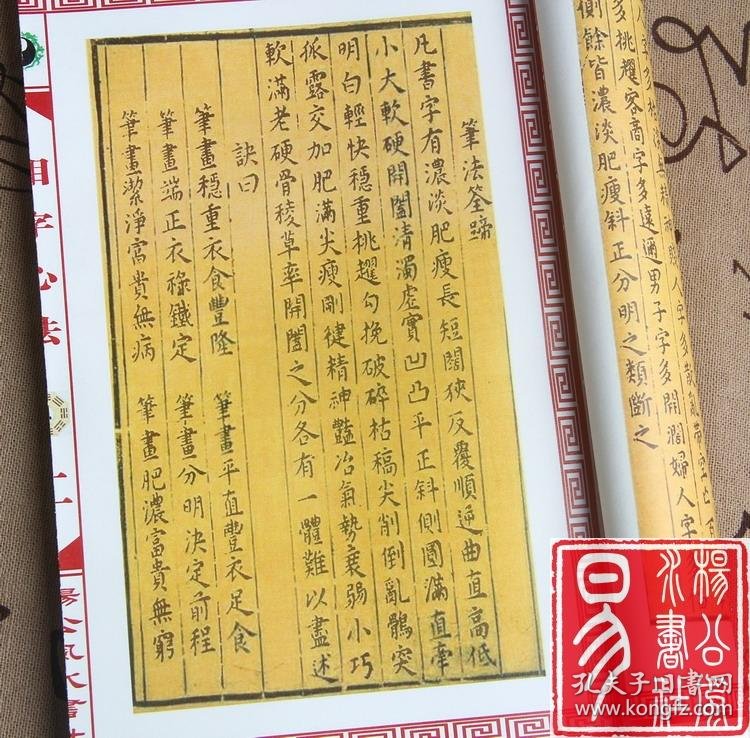 多桃趯客商字多遠邇男子字多開濶婦人字
側餘皆濃淡肥瘦斜正分明之類斷之
筆法筌蹄
凡書字有濃淡肥瘦長短闊狹反覆順逆曲直高低
小大軟硬開闔清濁虛實凹凸平正斜側圓滿直牽
明白輕快穩重桃趯勾挽破碎枯稿尖削倒亂鶻突
孤露交加肥滿尖瘦剛健精神豔冶氣勢衰弱小巧
軟滿老硬骨稜草率開闔之分各有一體難以盡述
訣曰
筆畫穩重衣食豐隆 筆畫平直豐衣足食
筆畫端正衣祿鐵定 筆畫分明決定前程
筆畫潔淨富貴無病 筆畫肥濃富貴無窮
相字心法
楊公風水書社
楊公風
水書社
易
孔夫子旧書网
www.kongfz.com